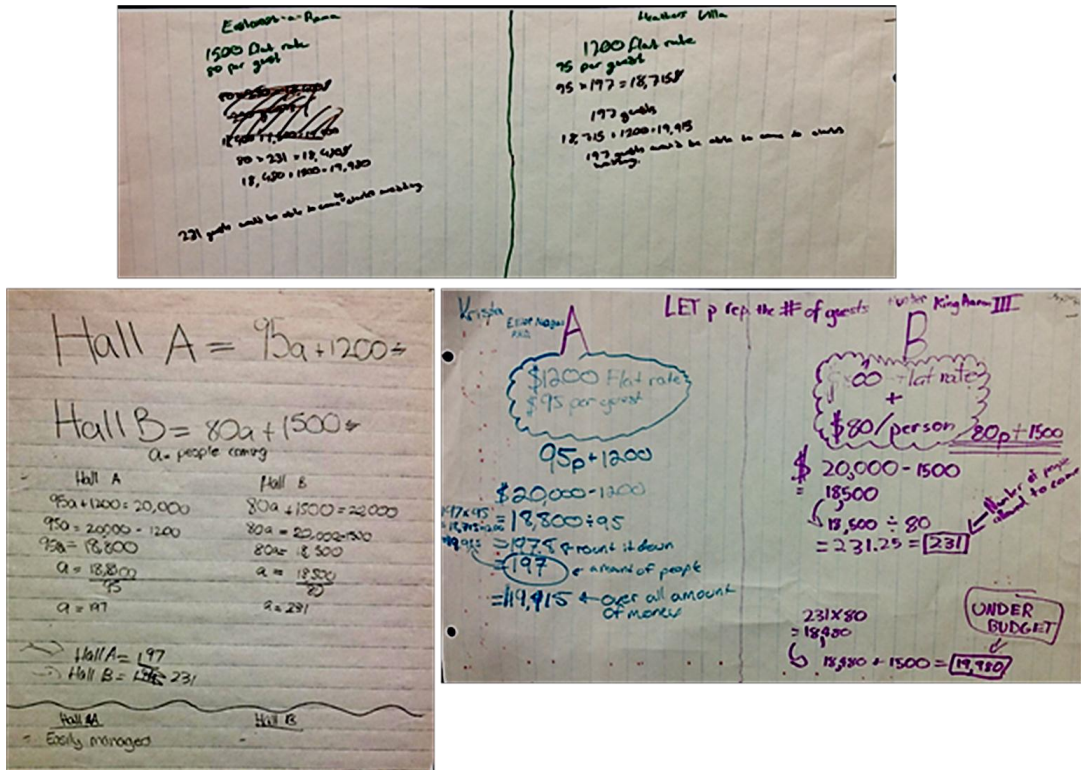 1500 Flat rate
80 per guest
80 × 231 = 18,480
18,480 + 1500 = 19,980
231 guests would be able to come to wedding
Heathers Villa
1200 Flat rate
95 per guest
95 × 197 = 18,715
197 guests
18,715 + 1200 = 19,915
197 guests would be able to come to
wedding.
Hall A = 95a + 1200
Hall B = 80a + 1500
a = people coming
Hall A
95a + 1200 = 20,000
95a = 20,000 - 1200
95a = 18,800
a = 18,800
95
a = 197
Hall B
80a + 1500 = 20,000
80a = 20,000 - 1500
80a = 18 500
a = 18,500
80
a = 231
Hall A = 197
Hall B = 231
Hall A
Easily managed
Hall B
Krista
LET p rep the # of guests
Hunter King Aaron III
A
$1200 Flat rate
$95 per guest
95p + 1200
$20,000 - 1200
= 18,800 ÷ 95
= 197.8 ← round it down
= 197 ← amount of people
= $19,915 ← over all amount
of money
197 × 95
B
Flat rate
+
$80/person
80p + 1500
$ 20,000 - 1500
= 18500
18,500 ÷ 80
= 231.25 = 231
Number of people
allowed to come
231 × 80
= 18480
18,480 + 1500 = 19,980
UNDER
BUDGET